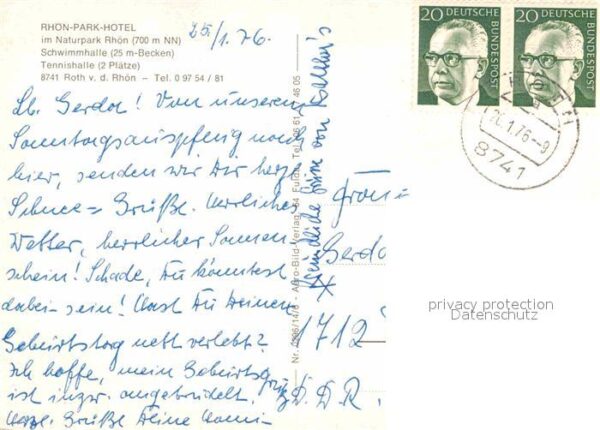 RHÖN-PARK-HOTEL
im Naturpark Rhön (700 m NN)
Schwimmhalle (25 m-Becken)
Tennishalle (2 Plätze)
8741 Roth v. d. Rhön – Tel. 0 97 54 / 81
25/1.76.
Lb. Gerda! Von unserem
Sonntagsauspflug nach
hier, senden wir Dir herzl.
Schnee= Grüße. Herrliches
Wetter, herrlicher Sonnen
schein! Schade, Du könntest
dabei-sein! Hast Du Deinen
Geburtstag nett verlebt?
Ich hoffe, mein Geburtsgruß
ist inzw. angetrudelt.
Herzl. Grüße Deine
Freundliche Grüße von
Nr. Agro-Bild-Verlag 64 Fulda, Tel. 46 05
20 DEUTSCHE BUNDESPOST
20 DEUTSCHE BUNDESPOST
1.76-9
8741
Frau=
Gerda
1712
D.D.R.
privacy protection
Datenschutz